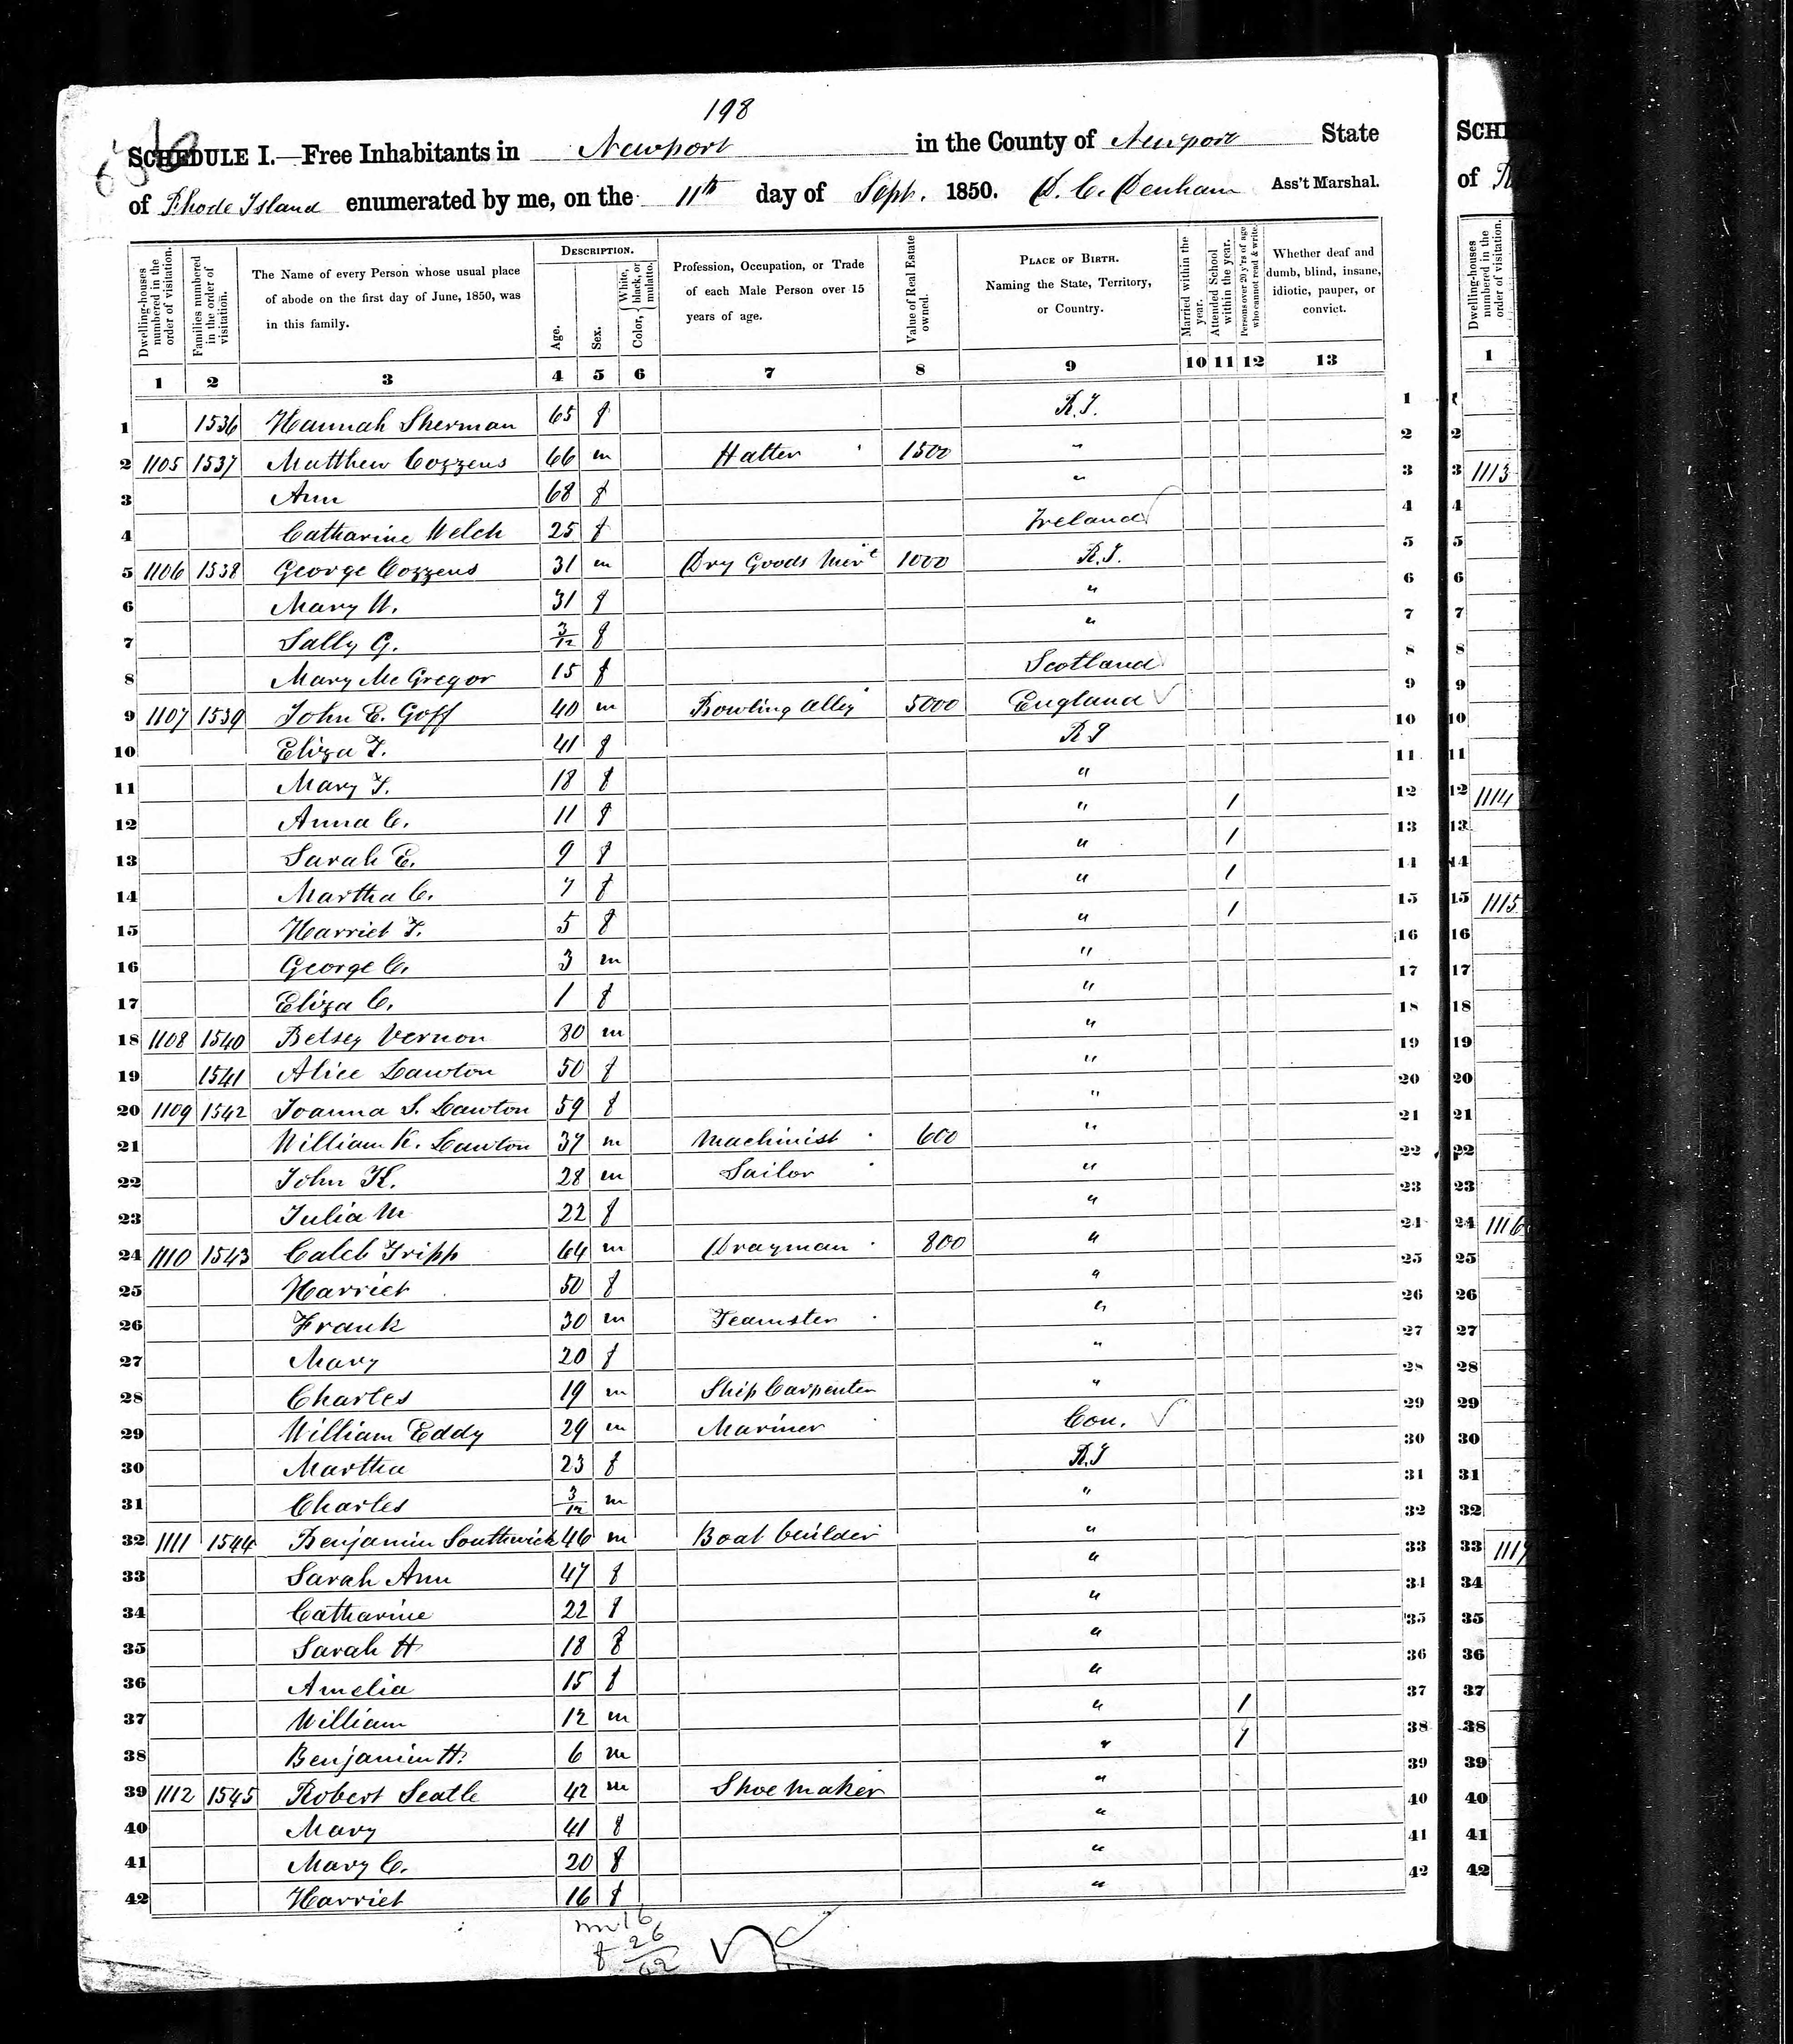 198
SCHEDULE I.—Free Inhabitants in Newport in the County of Newport State
of Rhode Island enumerated by me, on the 11th day of Sept. 1850. D. C. Denham Ass't Marshal.
Dwelling-houses numbered in the order of visitation.
Families numbered in the order of visitation.
The Name of every Person whose usual place of abode on the first day of June, 1850, was in this family.
DESCRIPTION.
Age.
Sex.
Color, White, black, or mulatto.
Profession, Occupation, or Trade of each Male Person over 15 years of age.
Value of Real Estate owned.
PLACE OF BIRTH. Naming the State, Territory, or Country.
Married within the year.
Attended School within the year.
Persons over 20 y'rs of age who cannot read & write.
Whether deaf and dumb, blind, insane, idiotic, pauper, or convict.
1 2 3 4 5 6 7 8 9 10 11 12 13
1 1536 Hannah Sherman 65 f R.I. 1
2 1105 1537 Matthew Cozzens 66 m Hatter 1500 " 2
3 Ann 68 f " 3
4 Catharine Welch 25 f Ireland 4
5 1106 1538 George Cozzens 31 m Dry Goods Mert 1000 R.I. 5
6 Mary 31 f " 6
7 Sally G. 3/12 f " 7
8 Mary McGregor 15 f Scotland 8
9 1107 1539 John E. Goff 40 m Bowling Alley 5000 England 9
10 Eliza T. 41 f R I 10
11 Mary T. 18 f " 11
12 Anna C. 11 f " 1 12
13 Sarah E. 9 f " 1 13
14 Martha C. 7 f " 1 14
15 Harriet T. 5 f " 1 15
16 George C. 3 m " 16
17 Eliza C. 1 f " 17
18 1108 1540 Betsey Vernon 80 m " 18
19 1541 Alice Lawton 50 f " 19
20 1109 1542 Joanna S. Lawton 59 f " 20
21 William K. Lawton 37 m Machinist 600 " 21
22 John K. 28 m Sailor " 22
23 Julia M 22 f " 23
24 1110 1543 Caleb Tripp 64 m Drayman 800 " 24
25 Harriet 50 f " 25
26 Frank 30 m Teamster " 26
27 Mary 20 f " 27
28 Charles 19 m Ship Carpenter " 28
29 William Eddy 29 m Mariner Con. 29
30 Martha 23 f R.I 30
31 Charles 3/12 m " 31
32 1111 1544 Benjamin Southwick 46 m Boat builder " 32
33 Sarah Ann 47 f " 33
34 Catharine 22 f " 34
35 Sarah H 18 f " 35
36 Amelia 15 f " 36
37 William 12 m " 1 37
38 Benjamin H. 6 m " 1 38
39 1112 1545 Robert Seatle 42 m Shoe Maker " 39
40 Mary 41 f " 40
41 Mary C. 20 f " 41
42 Harriet 16 f " 42
m 16
f 26
42
of
Dwelling-houses numbered in the order of visitation.
1
2
3 1113
4
5
6
7
8
9
10
11
12 1114
13
14
15 1115
16
17
18
19
20
21
22
23
24 1116
25
26
27
28
29
30
31
32
33
34
35
36
37
38
39
40
41
42